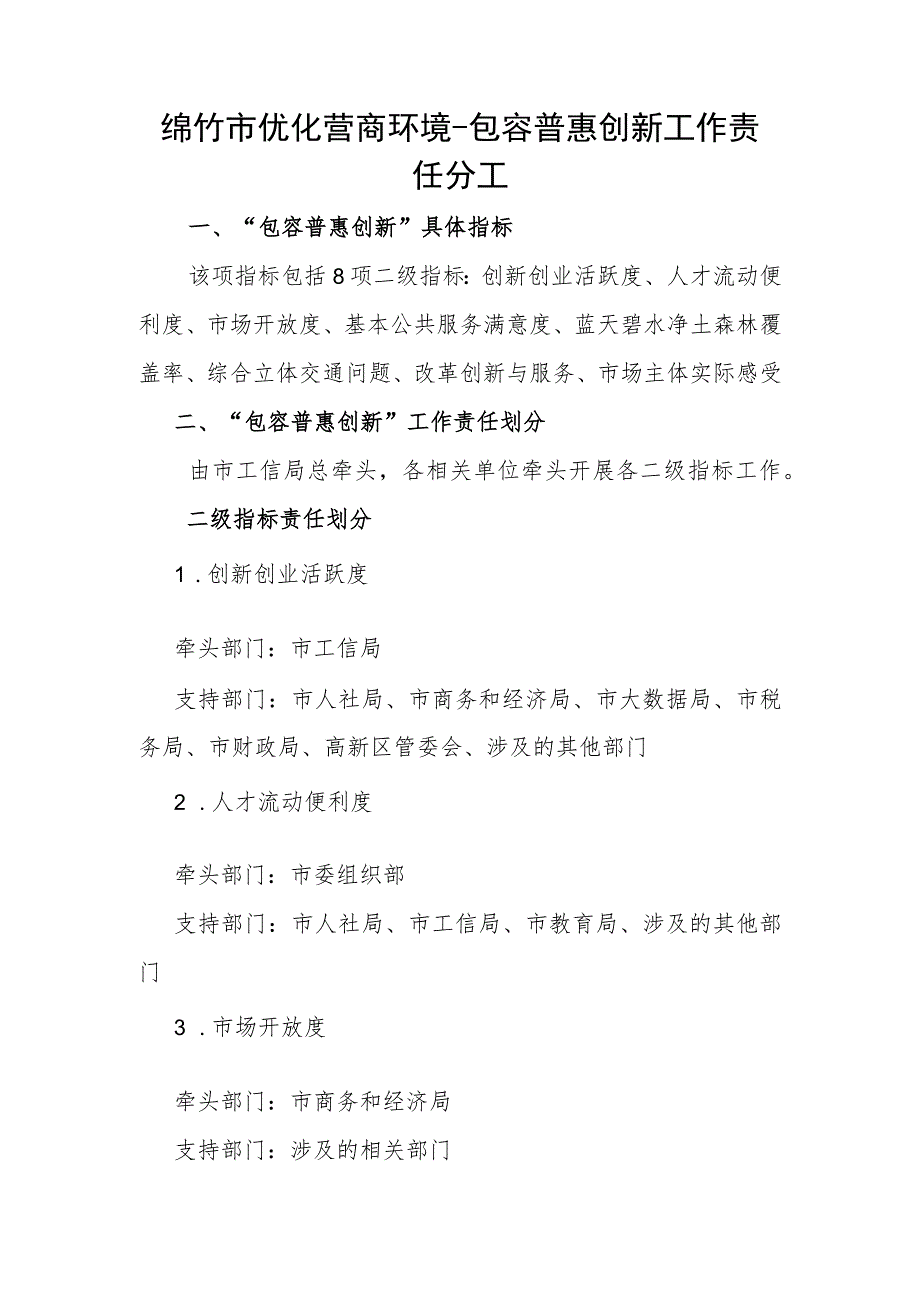 绵竹市优化营商环境-包容普惠创新工作责
任分工
一、“包容普惠创新”具体指标
该项指标包括8项二级指标：创新创业活跃度、人才流动便
利度、市场开放度、基本公共服务满意度、蓝天碧水净土森林覆
盖率、综合立体交通问题、改革创新与服务、市场主体实际感受
二、“包容普惠创新”工作责任划分
由市工信局总牵头，各相关单位牵头开展各二级指标工作。
二级指标责任划分
1 .创新创业活跃度
牵头部门：市工信局
支持部门：市人社局、市商务和经济局、市大数据局、市税
务局、市财政局、高新区管委会、涉及的其他部门
2 .人才流动便利度
牵头部门：市委组织部
支持部门：市人社局、市工信局、市教育局、涉及的其他部
门
3 .市场开放度
牵头部门：市商务和经济局
支持部门：涉及的相关部门